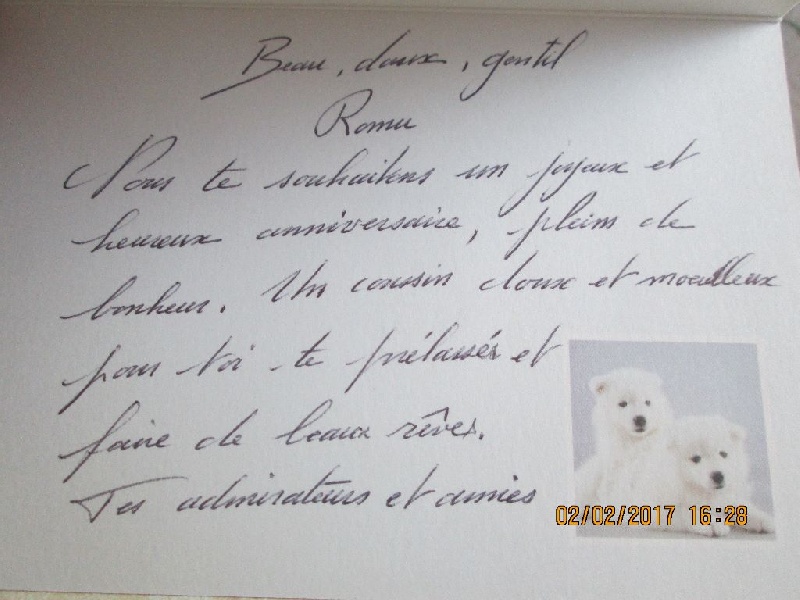 Beau, doux, gentil
Romu
Nous te souhaitons un joyeux et
heureux anniversaire, pleins de
bonheur. Un coussin doux et moelleux
pour toi te prélassés et
faire de beaux rêves.
Tes admirateurs et amies
02/02/2017 16:28